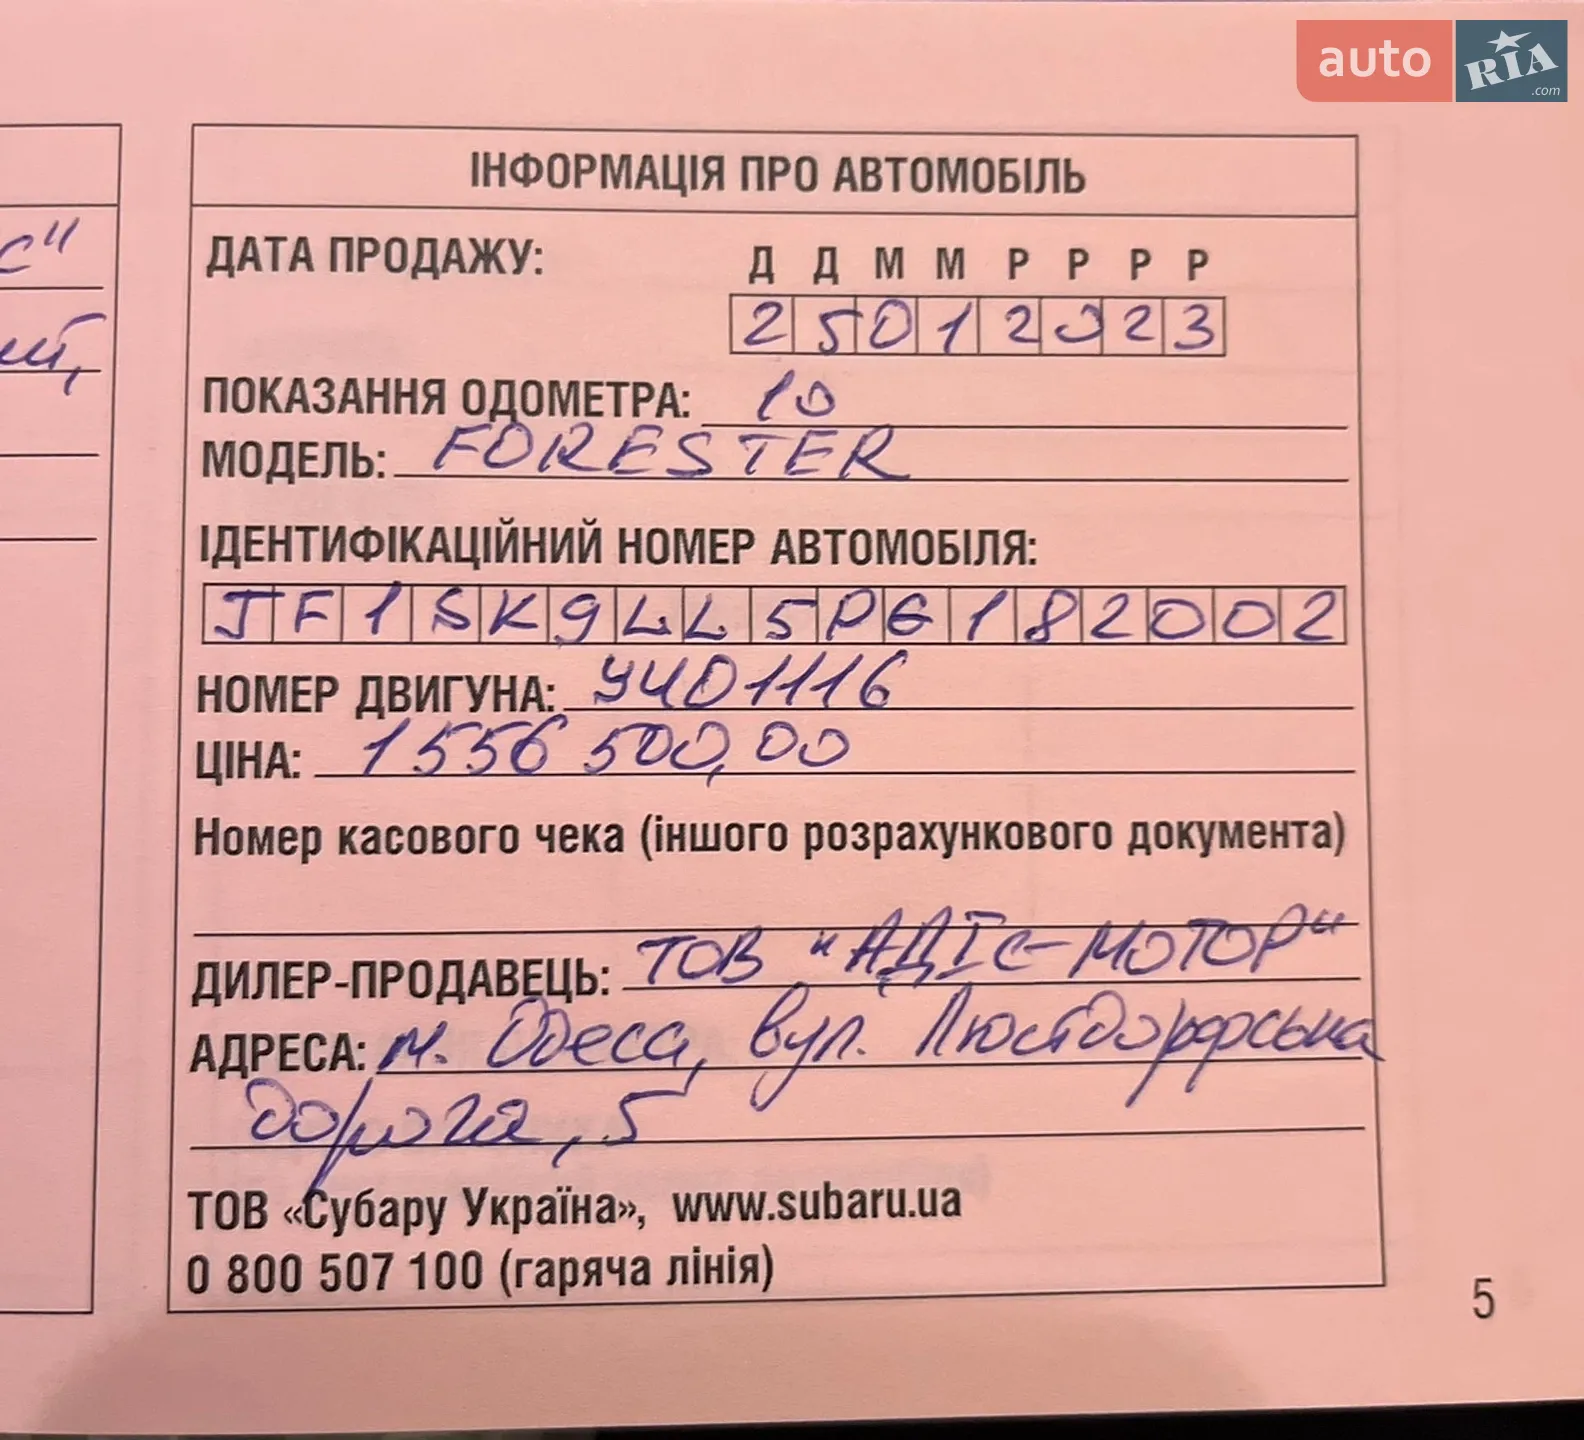 auto RIA.com
ІНФОРМАЦІЯ ПРО АВТОМОБІЛЬ
ДАТА ПРОДАЖУ: Д Д М М Р Р Р Р
2 5 0 1 2 0 2 3
ПОКАЗАННЯ ОДОМЕТРА: 10
МОДЕЛЬ: FORESTER
ІДЕНТИФІКАЦІЙНИЙ НОМЕР АВТОМОБІЛЯ:
J F 1 S K 9 L L 5 P G 1 8 2 0 0 2
НОМЕР ДВИГУНА: У401116
ЦІНА: 1556 500,00
Номер касового чека (іншого розрахункового документа)
ДИЛЕР-ПРОДАВЕЦЬ: ТОВ "АДІС-МОТОР"
АДРЕСА: м. Одеса, вул. Люстдорфська
дорога, 5
ТОВ «Субару Україна», www.subaru.ua
0 800 507 100 (гаряча лінія)
5